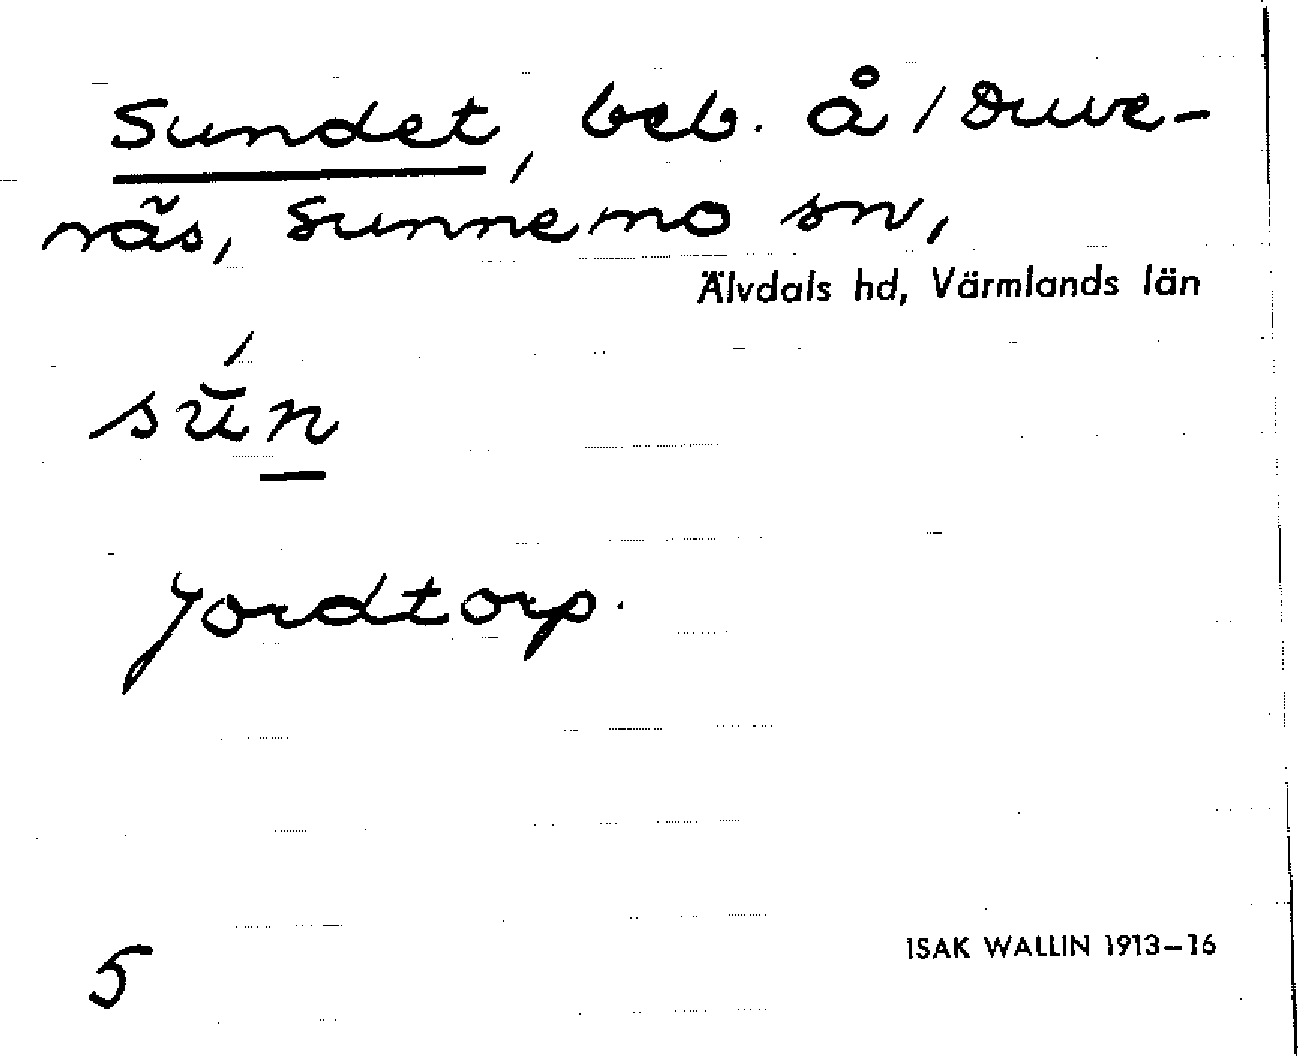 Sundet, beb. å / Duve-
näs, Sunnemo sn,
Älvdals hd, Värmlands län
sŭ́n
Jordtorp.
5
ISAK WALLIN 1913–16